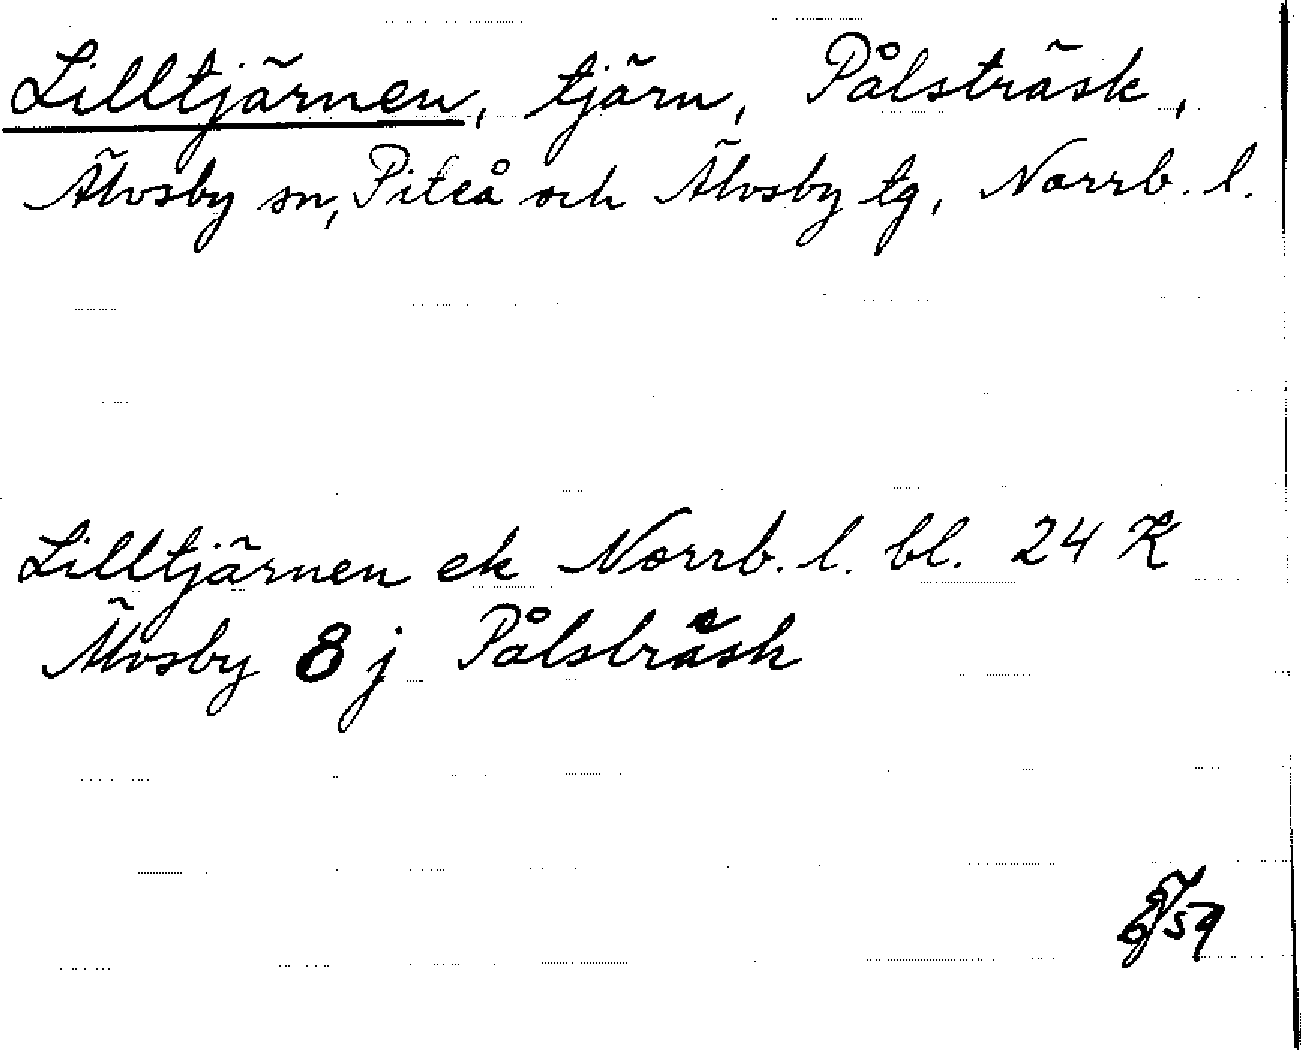 Lilltjärnen, tjärn, Pålsträsk,
Älvsby sn, Piteå och Älvsby tg, Norrb. l.
Lilltjärnen ek Norrb. l. bl. 24 K
Älvsby 8 j Pålsträsk
59